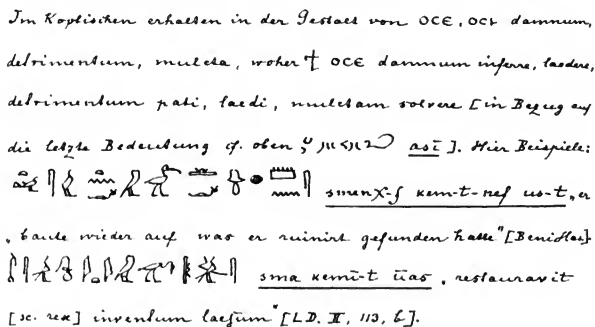 Im Koptischen erhalten in der Gestalt von ⲟⲥⲉ, ⲟⲥⲓ damnum,
detrimentum, mulcta, woher ϯ ⲟⲥⲉ damnum inferre, laedere,
detrimentum pati, laedi, mulctam solvere [in Bezug auf
die letzte Bedeutung cf. oben asī]. Hier Beispiele:
smenχ-f kem-t-nef us-t, „er
„baute wieder auf was er ruinirt gefunden hatte“ [BeniHas].
sma kemī-t ūas „restauravit
[sc. rex] inventum laesum“ [LD. II, 113, b].